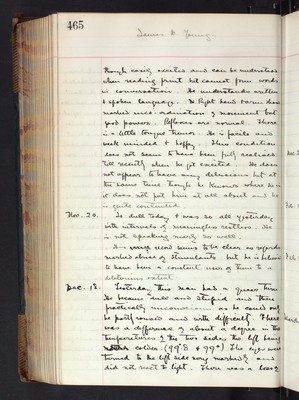 465
James B. Young.
though easily excited and can be understood
when reading print but cannot form words
in conversation. He understands written
& spoken language. The Right hand & arm show
marked inco-ordination of movement but
good power. Reflexes are normal. There
is a little tongue tremor. He is facile and
weak minded & happy. This condition
does not seem to have been fully realised
till recently when he got excited. He does
not appear to have any delusions but at
the same time though he knows where he is
it does not put him out at all about and he
is quite contented.
Nov. 20. Is dull today & was so all yesterday
with intervals of meaningless restless. He
is not speaking nearly so well.
His record seems to be clear as regards
marked abuse of stimulants but he is believed
to have been a constant user of them to a
deleterious extent.
Dec. 18. Yesterday this man had a queer turn
He became dull and stupid and then
practically unconscious as he could only
be partly roused and with difficulty. There
was a difference of about a degree in the
temperatures of the two sides the left being
colder. (99°.8 & 99°) The eyes were
turned to the left side very markedly and
did not react to light. There was a loss of